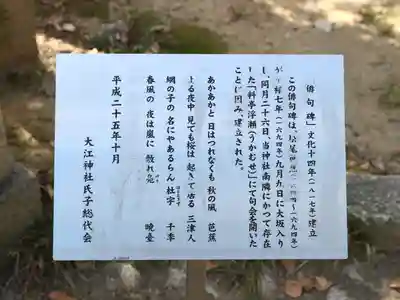 「俳句碑」文化十四年(一八一七年)建立
この俳句碑は、松尾芭蕉(一六九四年)
が元禄七年(一六九四年)九月九日に大坂入り
し、同月二十六日、当神社南隣にかつて存在
した「料亭浮瀬(うかむせ)」にて句会を開いた
ことに因み、建立された。
あかあかと 日はつれなくも 秋の風 芭蕉
よる夜中 見ても桜は 起きて居る 三津人
綱の子の 名にやあるらん 杜宇 千季
ほととぎす
春風の 夜は嵐に 敲れ 暁臺
平成二十五年十月
大江神社氏子総代会